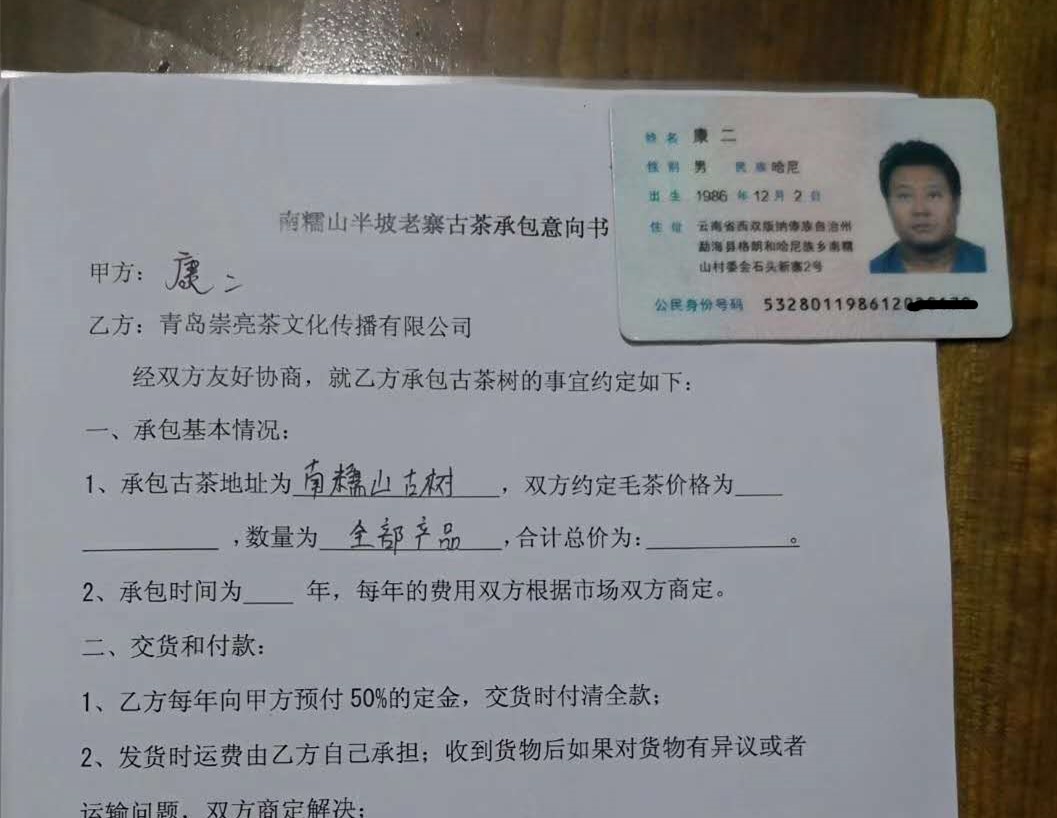 南糯山半坡老寨古茶承包意向书
甲方：康二
乙方：青岛崇亮茶文化传播有限公司
经双方友好协商，就乙方承包古茶树的事宜约定如下：
一、承包基本情况：
1、承包古茶地址为南糯山古树，双方约定毛茶价格为____
____，数量为全部产品，合计总价为：____。
2、承包时间为____年，每年的费用双方根据市场双方商定。
二、交货和付款：
1、乙方每年向甲方预付50%的定金，交货时付清全款；
2、发货时运费由乙方自己承担；收到货物后如果对货物有异议或者
运输问题，双方商定解决；
姓名 康二
性别 男 民族 哈尼
出生 1986 年 12 月 2 日
住址 云南省西双版纳傣族自治州
勐海县格朗和哈尼族乡南糯
山村委会石头新寨2号
公民身份号码 53280119861202